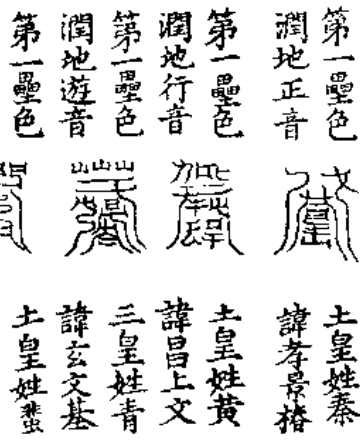 第一壘色
潤地正音
第一壘色
潤地行音
第一壘色
潤地遊音
第一壘色
土皇姓秦
諱孝景椿
土皇姓黃
諱昌上文
土皇姓青
諱玄文基
土皇姓蜚